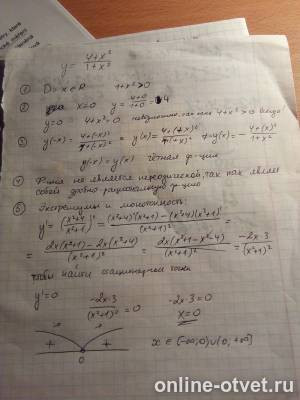 y = (4+x²)/(1+x²)
① D: x∈R 1+x²>0
② x=0 y = (4+0)/(1+0) = 4
y=0 4+x²=0 так как 4+x²>0 всегда!
③ y(-x) = (4+(-x)²)/(1+(-x)²) = y(x) =
y(-x) = y(x) чётная ф-ция
④ не является периодической, так как являет
собой дробно-рациональную ф-цию
⑤ Экстремумы и монотонность:
y' = ((x²+4)/(x²+1))' = ((x²+4)'(x²+1) - (x²+4)(x²+1)')/(x²+1)² =
= (2x(x²+1) - 2x(x²+4))/(x²+1)² = (2x(x²+1-x²-4))/(x²+1)² = (-2x·3)/(x²+1)²
чтобы найти стационарные точки
y'=0 (-2x·3)/(x²+1)² = 0 -2x·3=0
x=0
+ +
0
x ∈ [-∞;0)∪(0;+∞]
online-otvet.ru